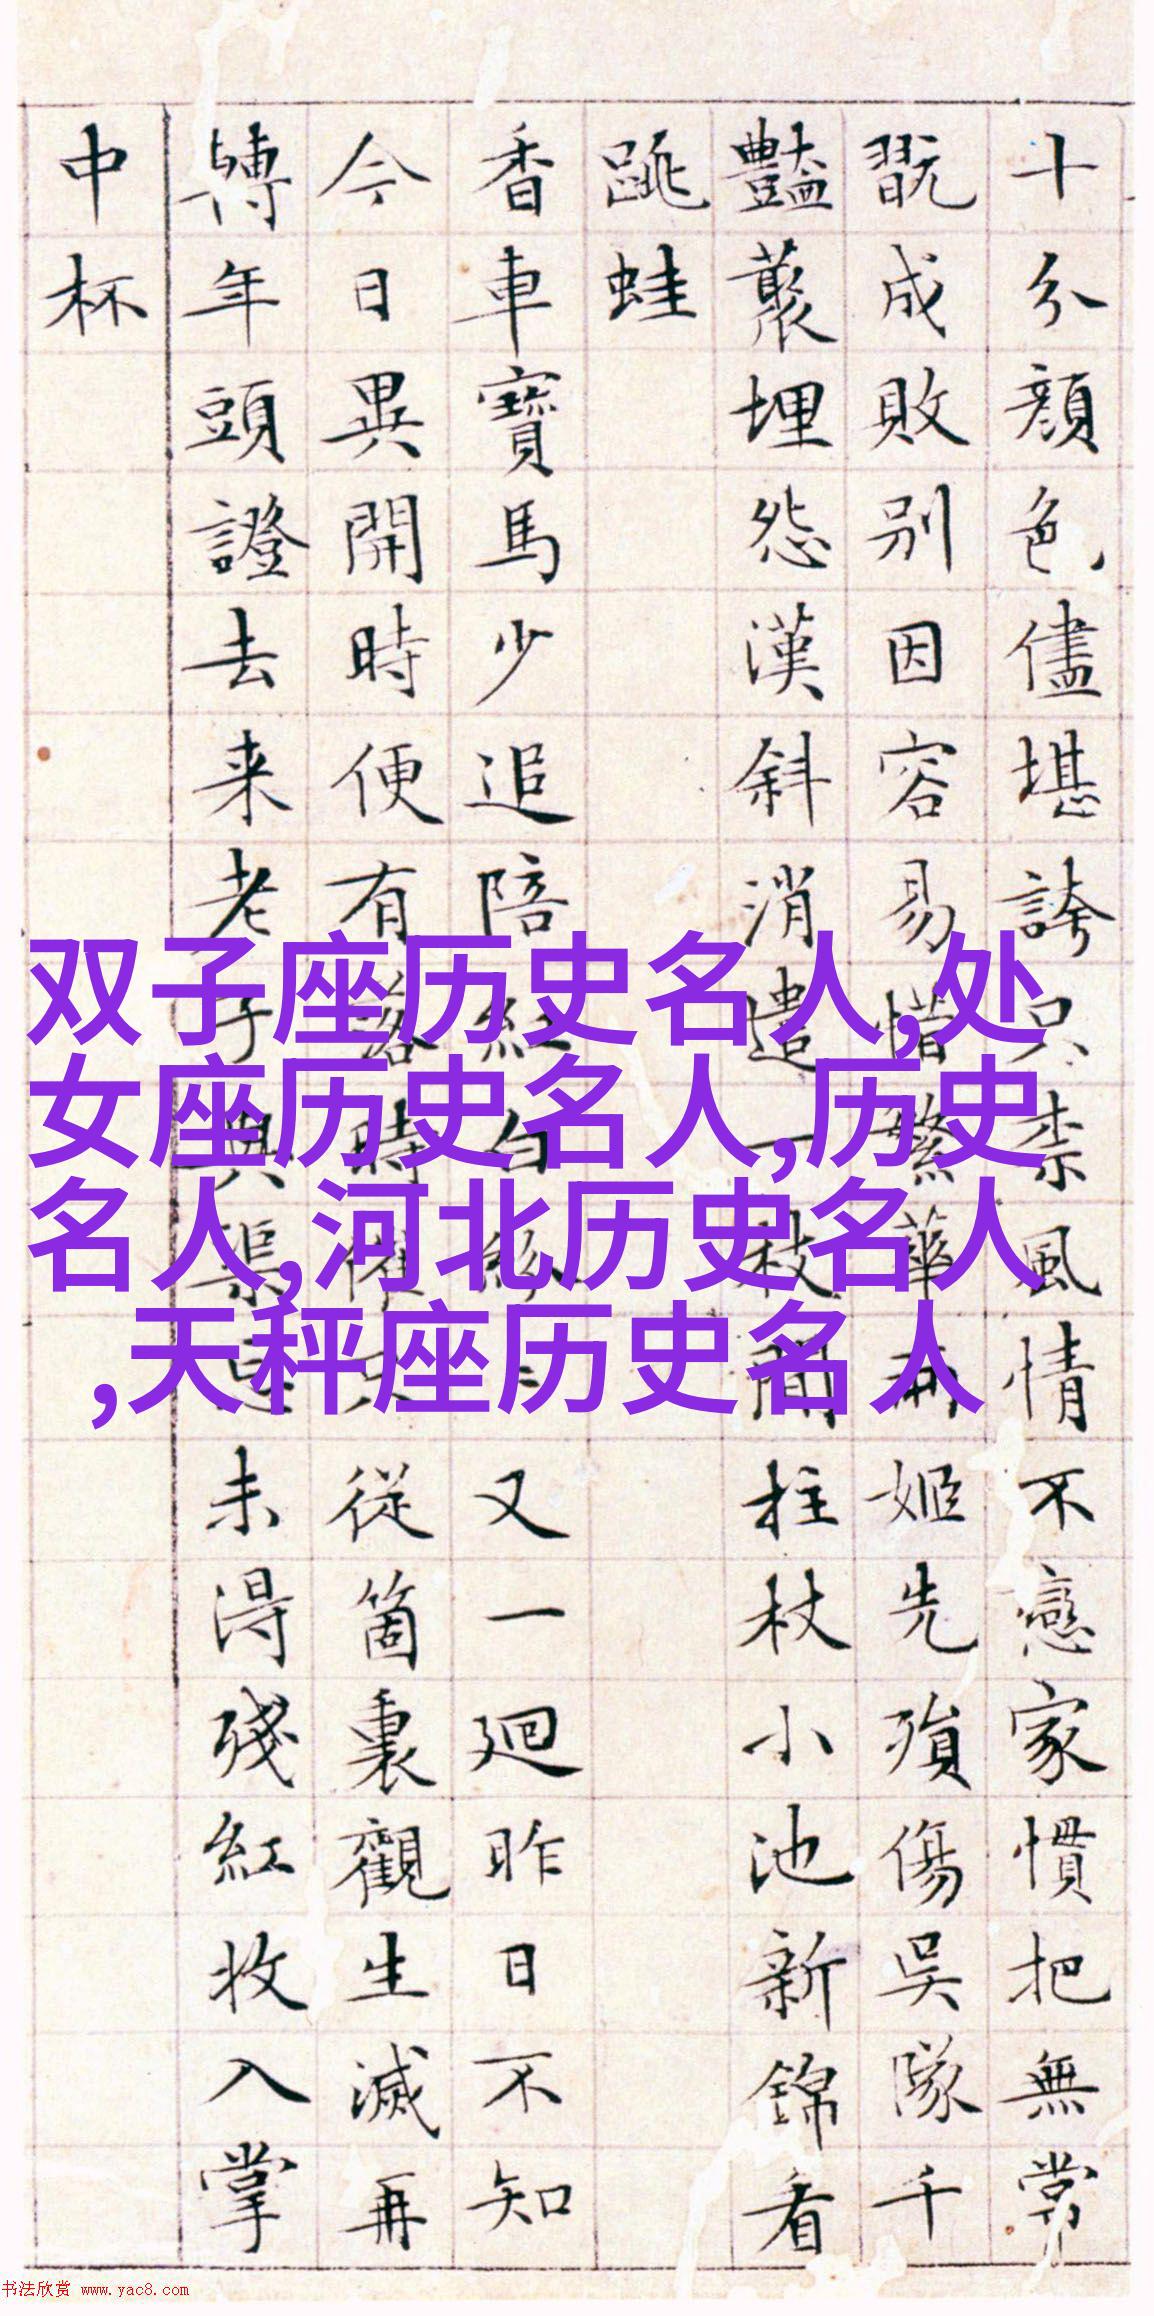 十分顏色儘堪誇只柰風情不戀家慣把無常
翫成敗別因容易惜繁華兩姬先殞傷吳隊千
豔叢埋怨漢斜消遣一枝閒柱杖小池新錦看
跳蛙
香車寶馬少追陪紅白紛紛又一迴昨日不知
今日異開時便有落時催只從箇裏觀生滅再
轉年頭證去来老子與渠是未得殘紅收入掌
中杯
双子座历史名人,处
女座历史名人,历史
名人,河北历史名人
,天秤座历史名人
书法欣赏 www.yac8.com